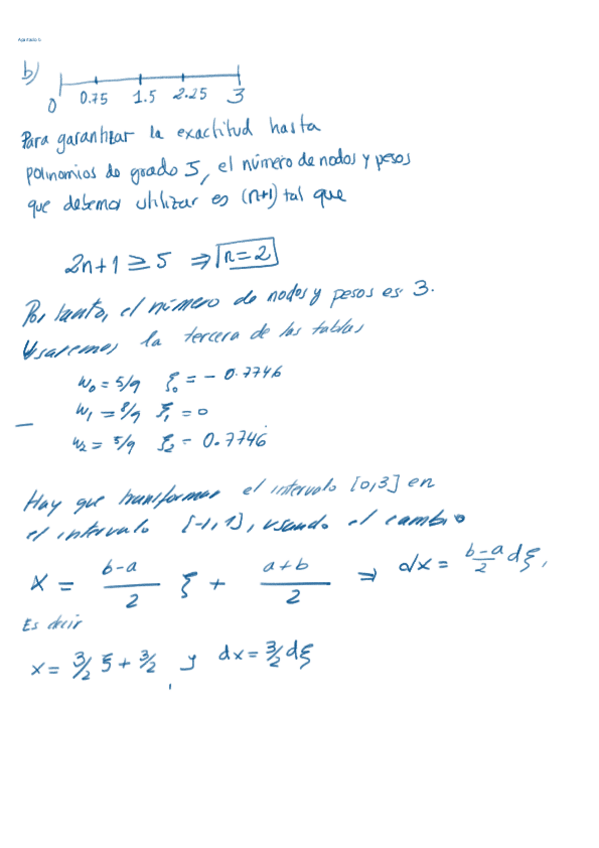 Apartado b
b)
0 0.75 1.5 2.25 3
Para garantizar la exactitud hasta
polinomios de grado 5, el número de nodos y pesos
que debemos utilizar es (n+1) tal que
2n+1 ≥ 5 ⇒ n=2
Por tanto, el número de nodos y pesos es 3.
Usaremos la tercera de las tablas
w₀ = 5/9 ξ₀ = - 0.7746
w₁ = 8/9 ξ₁ = 0
w₂ = 5/9 ξ₂ = 0.7746
Hay que transformar el intervalo [0,3] en
el intervalo [-1,1], usando el cambio
x = (b-a)/2 ξ + (a+b)/2 ⇒ dx = (b-a)/2 dξ,
Es decir
x = 3/2 ξ + 3/2 y dx = 3/2 dξ